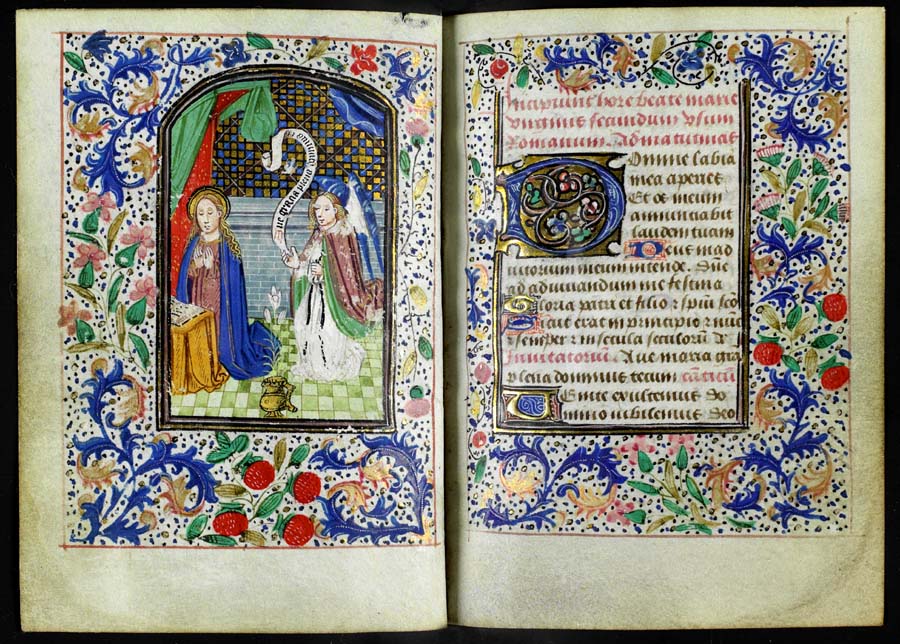 ave gracia plena
Incipiunt hore beate marie
virginis secundum usum
Romanum. Ad matutinas
Domine labia
mea aperies
Et os meum
annunciabit
laudem tuam
Deus in ad
iutorium meum intende. Dne
ad adiuvandum me festina
Gloria patri et filio et spiui sco
Sicut erat in principio et nuc
et semper et in secula seculorum
Invitatoriu. Ave maria gra
plena dominus tecum
Venite exultemus do
mino iubilemus deo